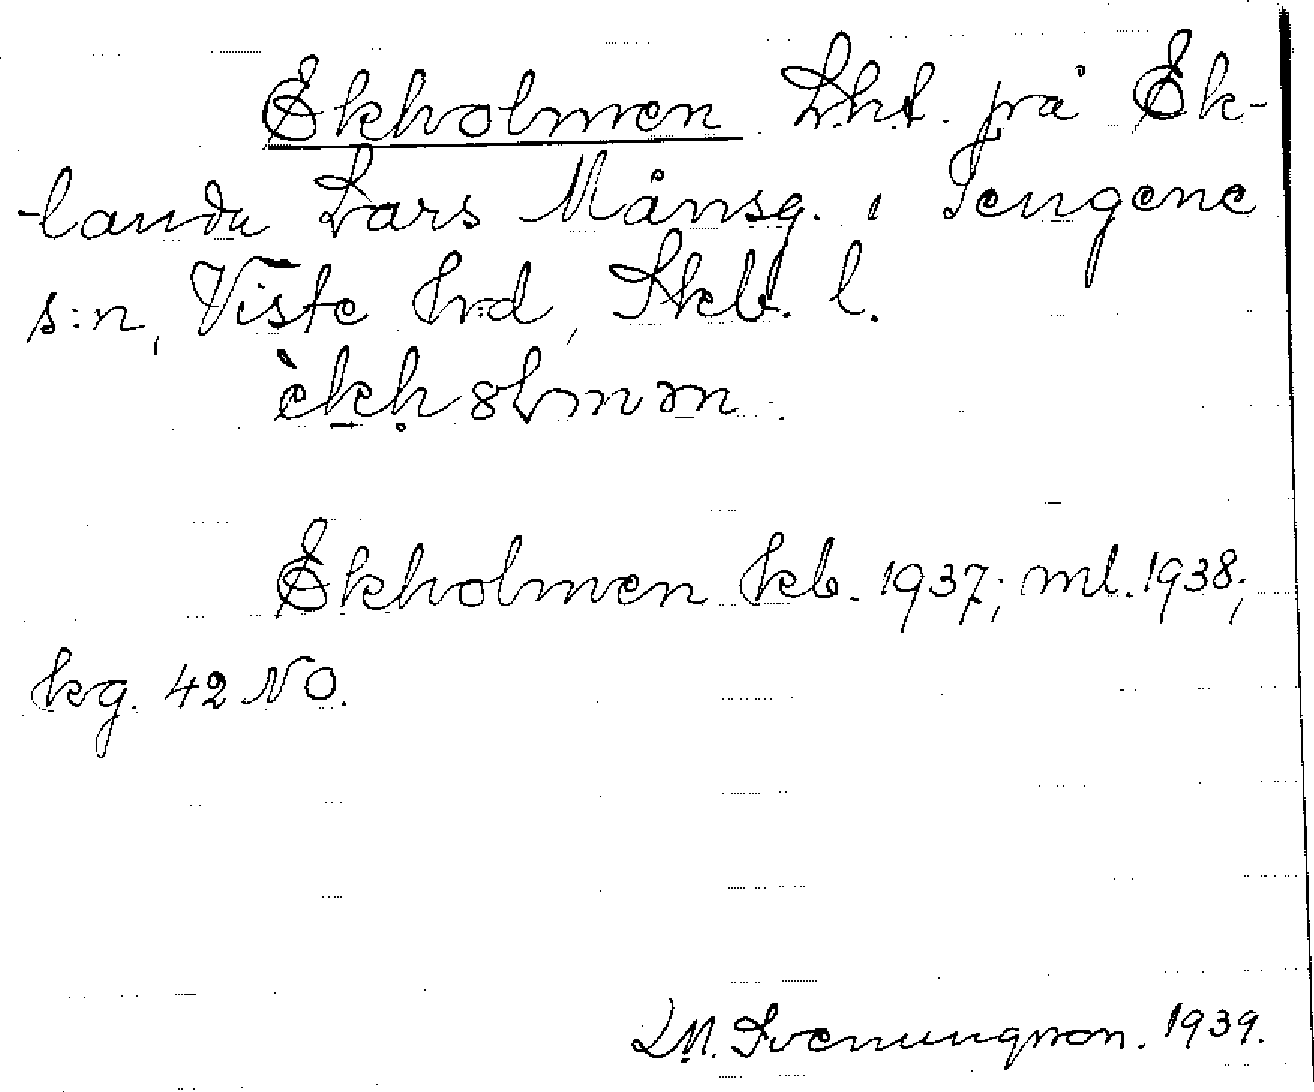 Ekholmen Lht. på Ek-
landa Lars Månsg. i Tengene
s:n, Viste hrd, Skb. l.
Ekholmen kb. 1937; ml. 1938;
kg. 42 NO.
L.M. Svenungsson. 1939.